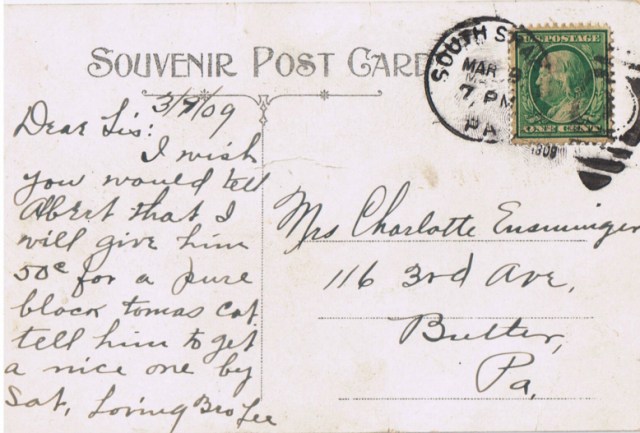 SOUVENIR POST CARD
3/9/09
Dear Sis:
I wish
you would tell
Albert that I
will give him
50c for a pure
black tomas cat
tell him to get
a nice one by
Sat, Loving Bro Lee
SOUTH
MAR
7 PM
PA
1909
U.S. POSTAGE
ONE CENT
Mrs Charlotte Ensminger
116 3rd Ave,
Butler,
Pa,